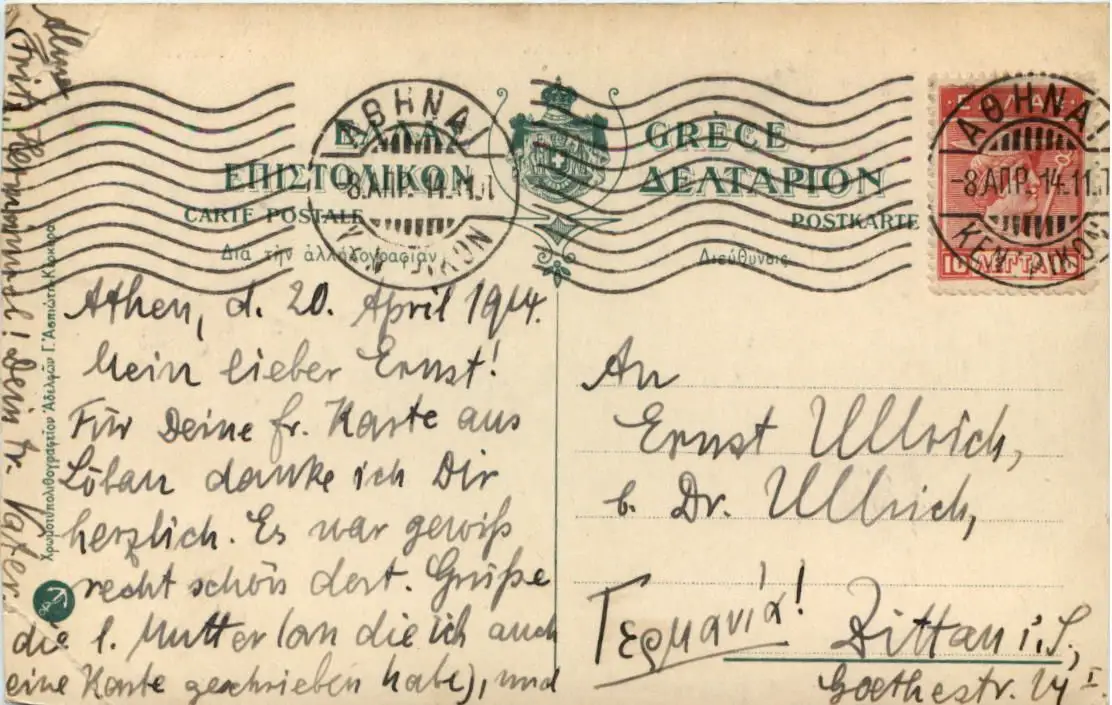 ΕΛΛΑΣ
GRÈCE
ΕΠΙΣΤΟΛΙΚΟΝ
ΔΕΛΤΑΡΙΟΝ
CARTE POSTALE
POSTKARTE
Διὰ τὴν ἀλληλογραφίαν
Διεύθυνσις
ΑΘΗΝΑΙ
-8.ΑΠΡ.14.11.
ΑΘΗΝΑΙ
-8.ΑΠΡ.14.11.
10 ΛΕΠΤΑ 10
Athen, d. 20. April 1914.
Mein lieber Ernst!
Für Deine fr. Karte aus
Löbau danke ich Dir
herzlich. Es war gewiß
recht schön dort. Grüße
die l. Mutter (an die ich auch
eine Karte geschrieben habe), und
Fritz, Dein tr. Vater.
An
Ernst Ullrich,
b. Dr. Ullrich,
Γερμανία!
Zittau i. S.,
Goethestr.
Χρωμοτυπολιθογραφεῖον Ἀδελφῶν Γ. Ἀσπιώτη-Κέρκυρα